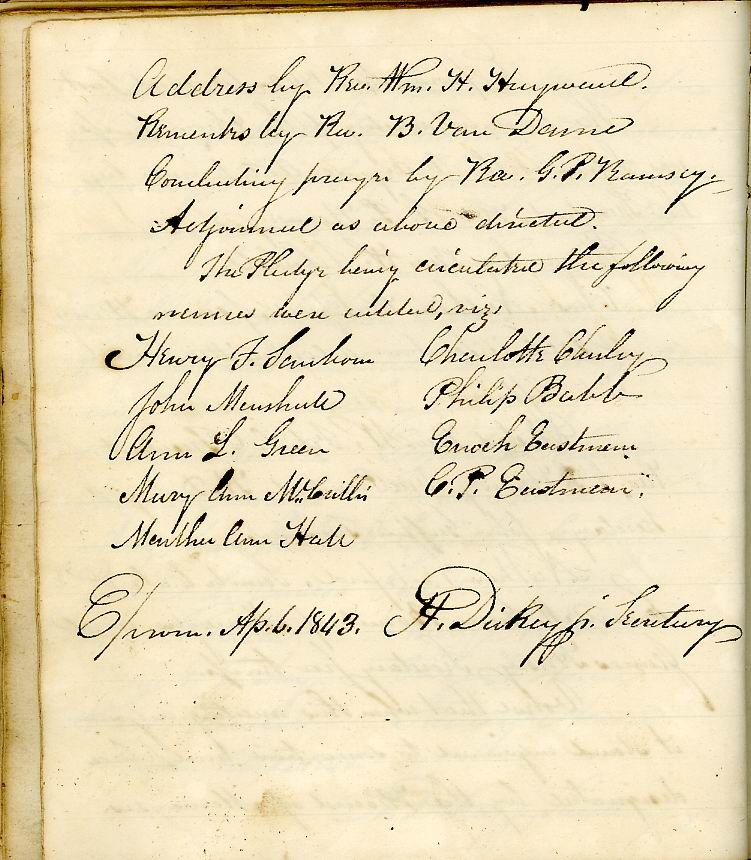 Address by Rev. Wm. H. Hayward.
Remarks by Rev. B. Van Dame
Concluding prayer by Rev. G. P. Ramsey.
Adjourned as above directed.
The Pledge being circulated the following
names were added, viz,
Henry F. Sanborn Charlotte Chesley
John Marshall Philip Babb
Ann L. Green Enoch Eastman
Mary Ann McCrillis C. P. Eastman.
Martha Ann Hall
Epsom. Ap. 6. 1843. H. Dickey jr. Secretary